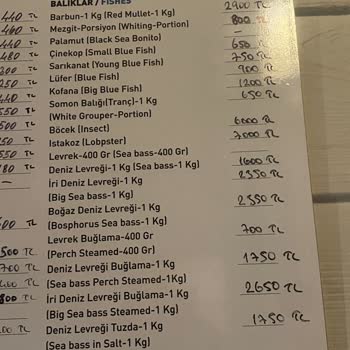 BALIKLAR / FISHES
Barbun-1 Kg (Red Mullet-1 Kg) 2900 TL
Mezgit-Porsiyon (Whiting-Portion) 800 TL
Palamut (Black Sea Bonito) —
Çinekop (Small Blue Fish) 650 TL
Sarıkanat (Young Blue Fish) 750 TL
Lüfer (Blue Fish) 900 TL
Kofana (Big Blue Fish) 1200 TL
Somon Balığı(Tranç)-1 Kg 650 TL
(White Grouper-Portion)
Böcek (Insect) 6000 TL
Istakoz (Lobster) 7000 TL
Levrek-400 Gr (Sea bass-400 Gr)
Deniz Levreği-1 Kg (Sea bass-1 Kg) 1600 TL
İri Deniz Levreği-1 Kg 2350 TL
(Big Sea bass-1 Kg)
Boğaz Deniz Levreği-1 Kg 2550 TL
(Bosphorus Sea bass-1 Kg)
Levrek Buğlama-400 Gr 700 TL
(Perch Steamed-400 Gr)
Deniz Levreği Buğlama-1 Kg 1750 TL
(Sea bass Perch Steamed-1Kg)
İri Deniz Levreği Buğlama-1 Kg 2650 TL
(Big Sea bass Steamed-1 Kg)
Deniz Levreği Tuzda-1 Kg 1750 TL
(Sea bass in Salt-1 Kg)